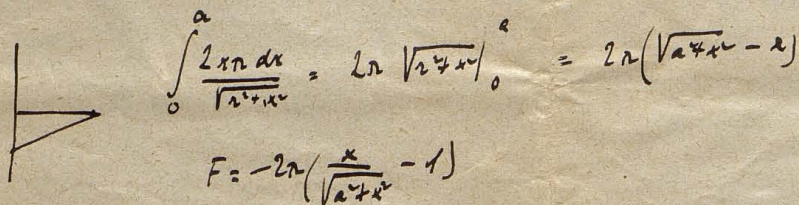 ∫₀ᵃ 2rπ dr / √(r²+x²) = 2π √(r²+x²) |₀ᵃ = 2π(√(a²+x²) - x)
F = -2π(x / √(a²+x²) - 1)